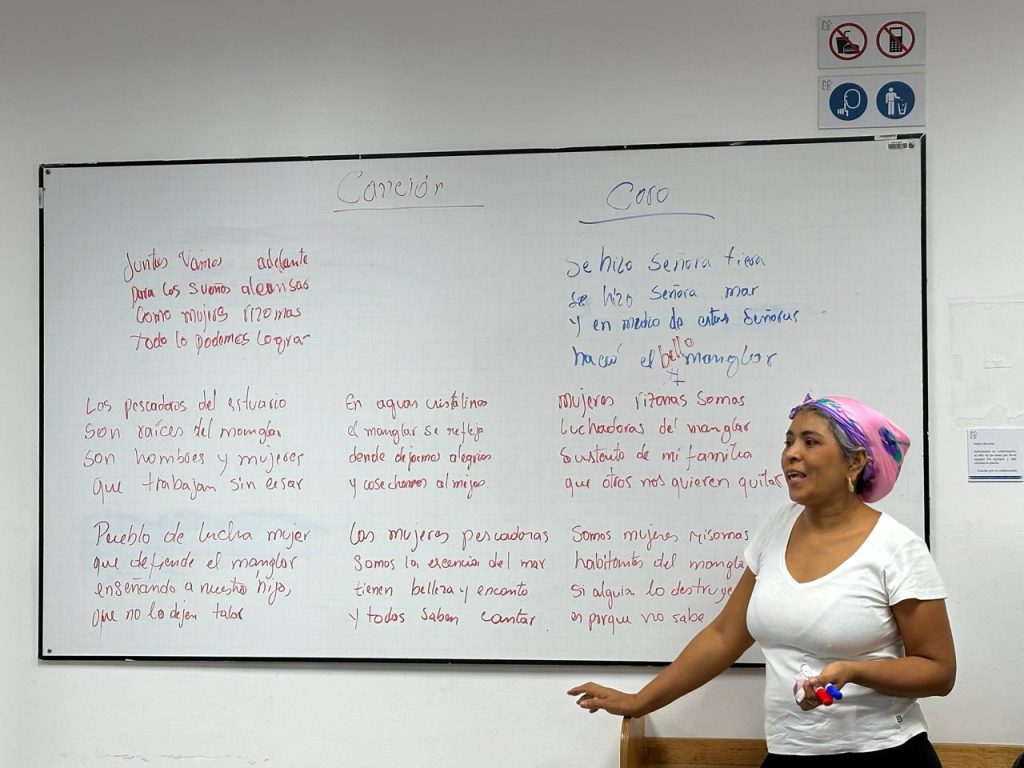 Canción
Juntas Vamos adelante
para los sueños alcansar
como mujeres rizomas
todo lo podemos lograr
Los pescadores del estuario
son raíces del manglar
son hombres y mujeres
que trabajan sin cesar
En aguas cristalinas
el manglar se refleja
dende dejamos alegrias
y cosechamos almejas
Pueblo de lucha mujer
que defiende el manglar
enseñando a nuestro hijo,
que no lo dejen talar
Las mujeres pescadoras
Somos la escencia del mar
tienen belleza y encanto
y todas saben cantar
Coro
Se hizo Señora tierra
se hizo Señora mar
y en medio de estas Señoras
nació el bello manglar
Mujeres rizomas somos
luchadoras del manglar
Sustento de mi familia
que otros nos quieren quitar
Somos mujeres risomas
habitantes del
si alguin lo destruye
es porque no sabe